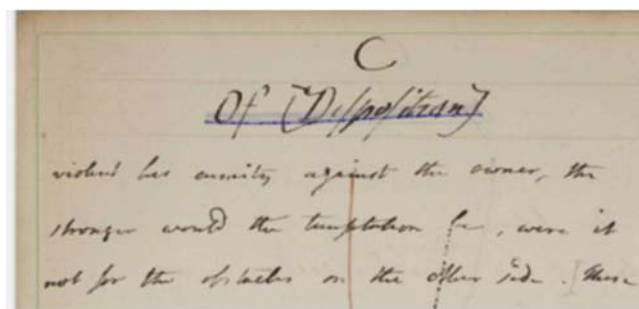 C
Of [Disposition]
violent his enmity against the owner, the
stronger would the temptation be, were it
not for the obstacles on the other side. [These